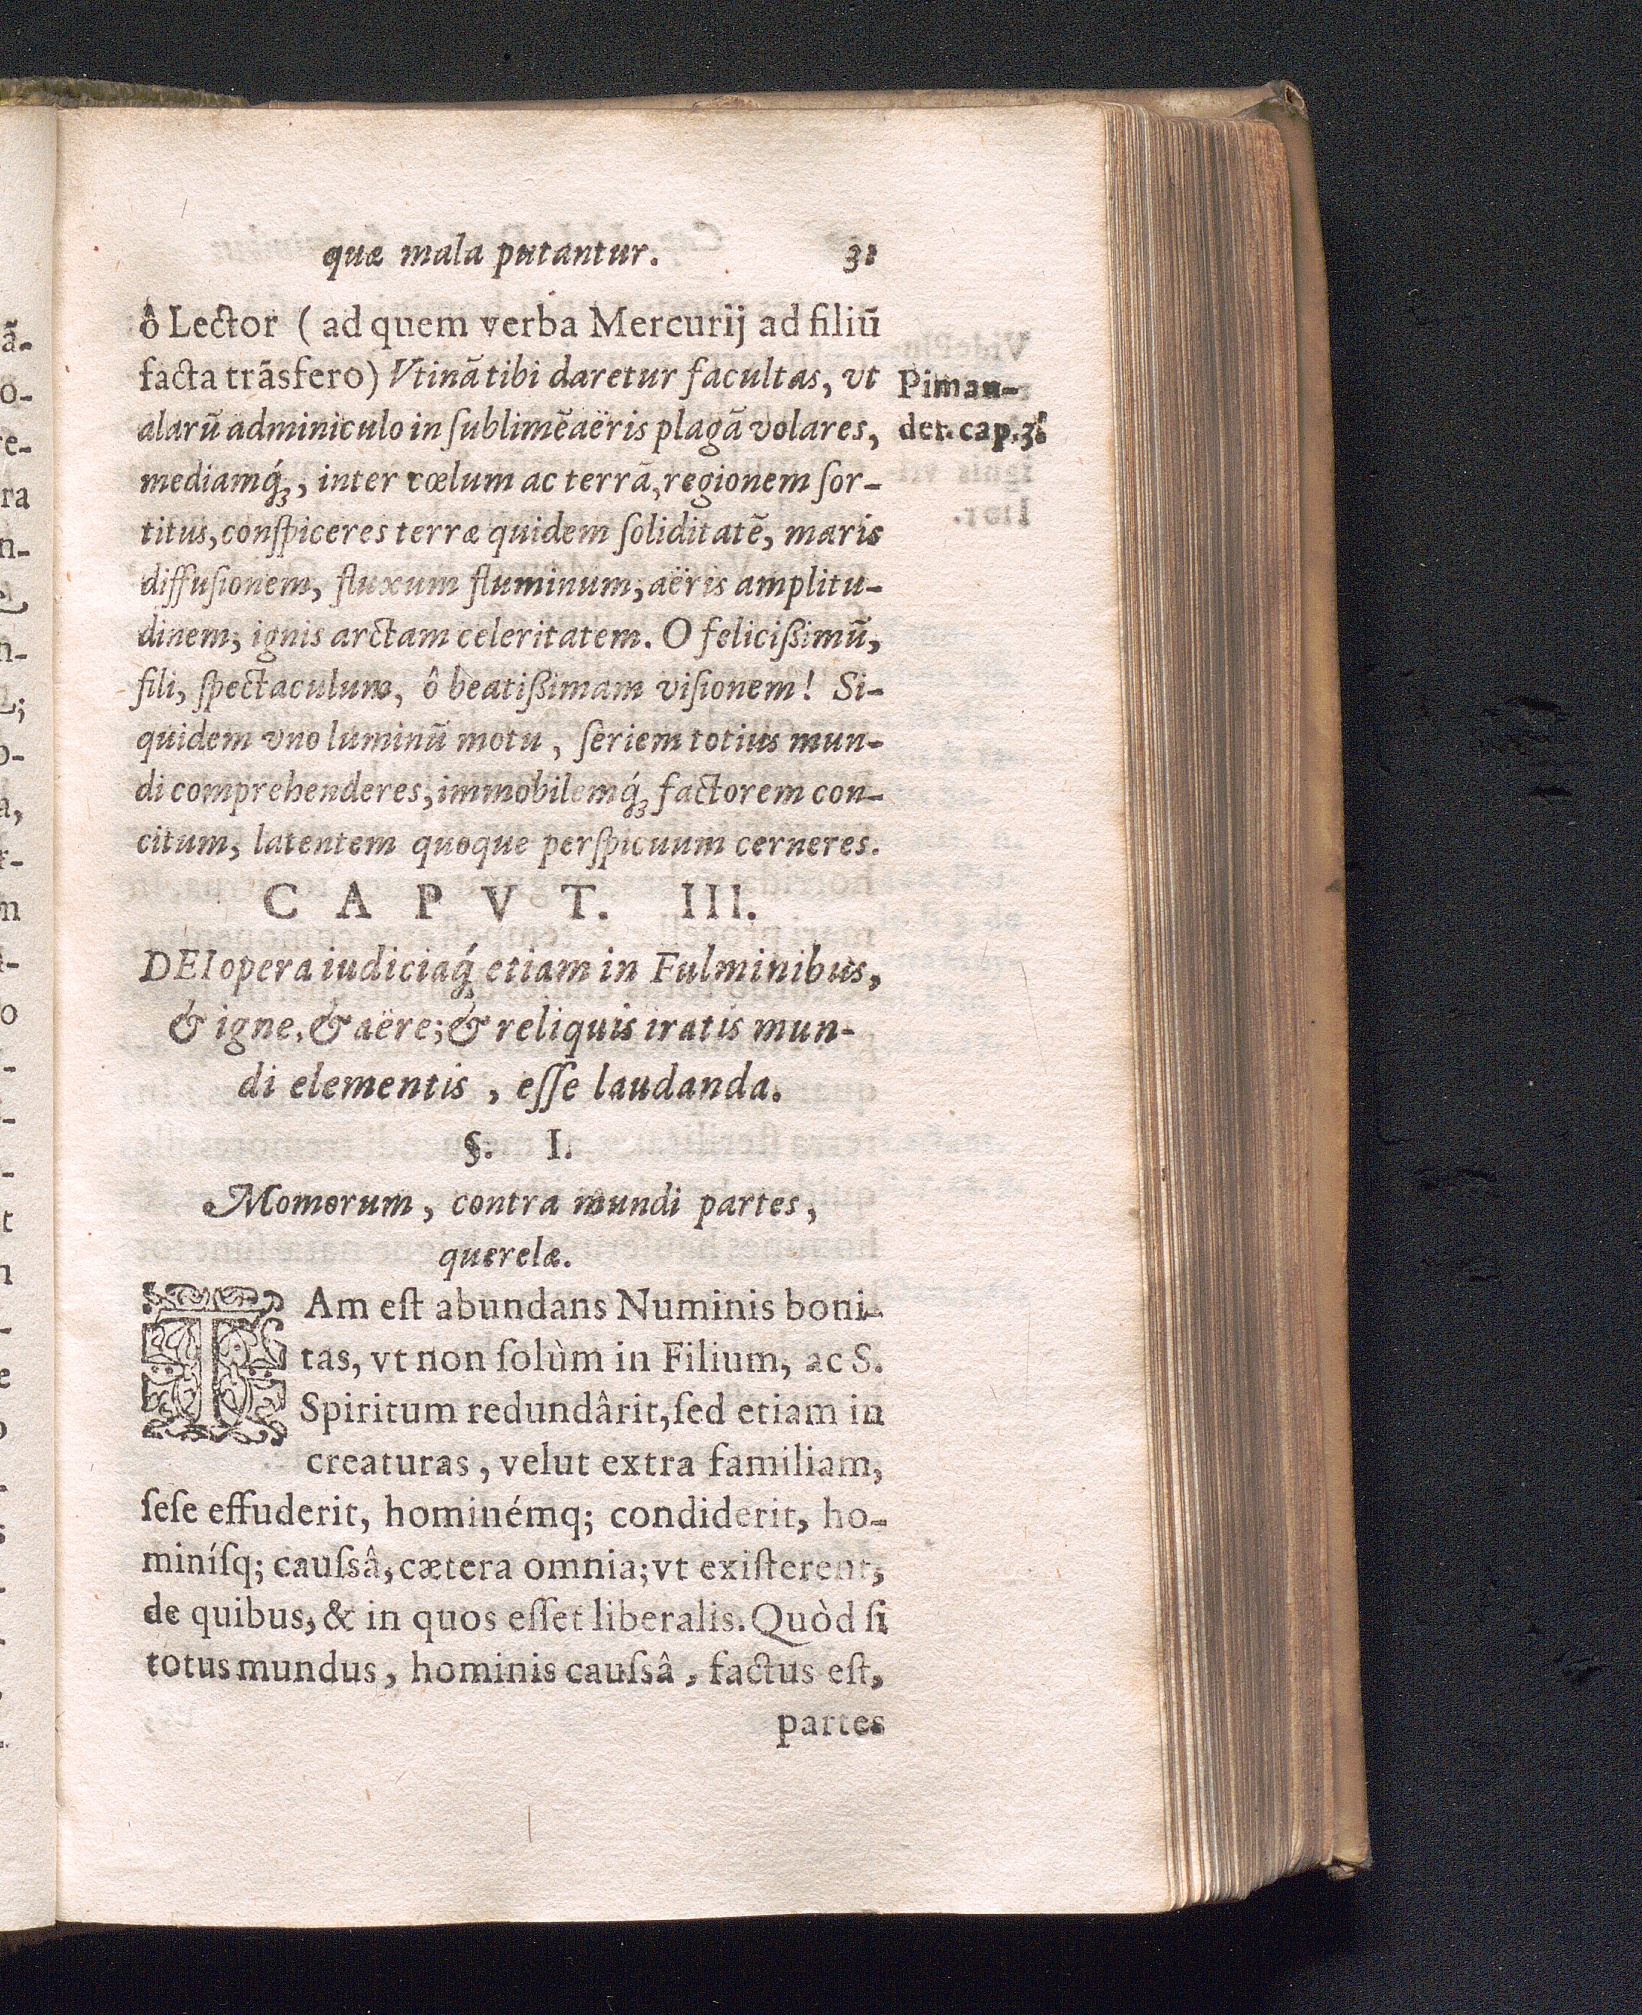 quæ mala putantur. 31
ô Lector ( ad quem verba Mercurij ad filiũ
facta trãsfero) Vtinã tibi daretur facultas, vt
alarũ adminiculo in ſublimẽ aëris plagã volares,
mediamq́ꝫ, inter cœlum ac terrã, regionem ſor-
titus, conſpiceres terræ quidem ſoliditatẽ, maris
diffuſionem, fluxum fluminum, aëris amplitu-
dinem, ignis arctam celeritatem. O felicißimũ,
fili, ſpectaculum, ô beatißimam viſionem! Si-
quidem vno luminũ motu, ſeriem totius mun-
di comprehenderes, immobilemq́ꝫ factorem con-
citum, latentem quoque perſpicuum cerneres.
Piman-
der. cap. 3.
CAPVT. III.
DEI opera iudiciaq́ꝫ etiam in Fulminibus,
& igne, & aëre; & reliquis iratis mun-
di elementis, eſſe laudanda.
§. I.
Momorum, contra mundi partes,
querelæ.
TAm eſt abundans Numinis boni-
tas, vt non ſolùm in Filium, ac S.
Spiritum redundârit, ſed etiam in
creaturas, velut extra familiam,
ſeſe effuderit, hominémq; condiderit, ho-
miníſq; cauſsâ, cætera omnia; vt exiſterent,
de quibus, & in quos eſſet liberalis. Quòd ſi
totus mundus, hominis cauſsâ, factus eſt,
partes